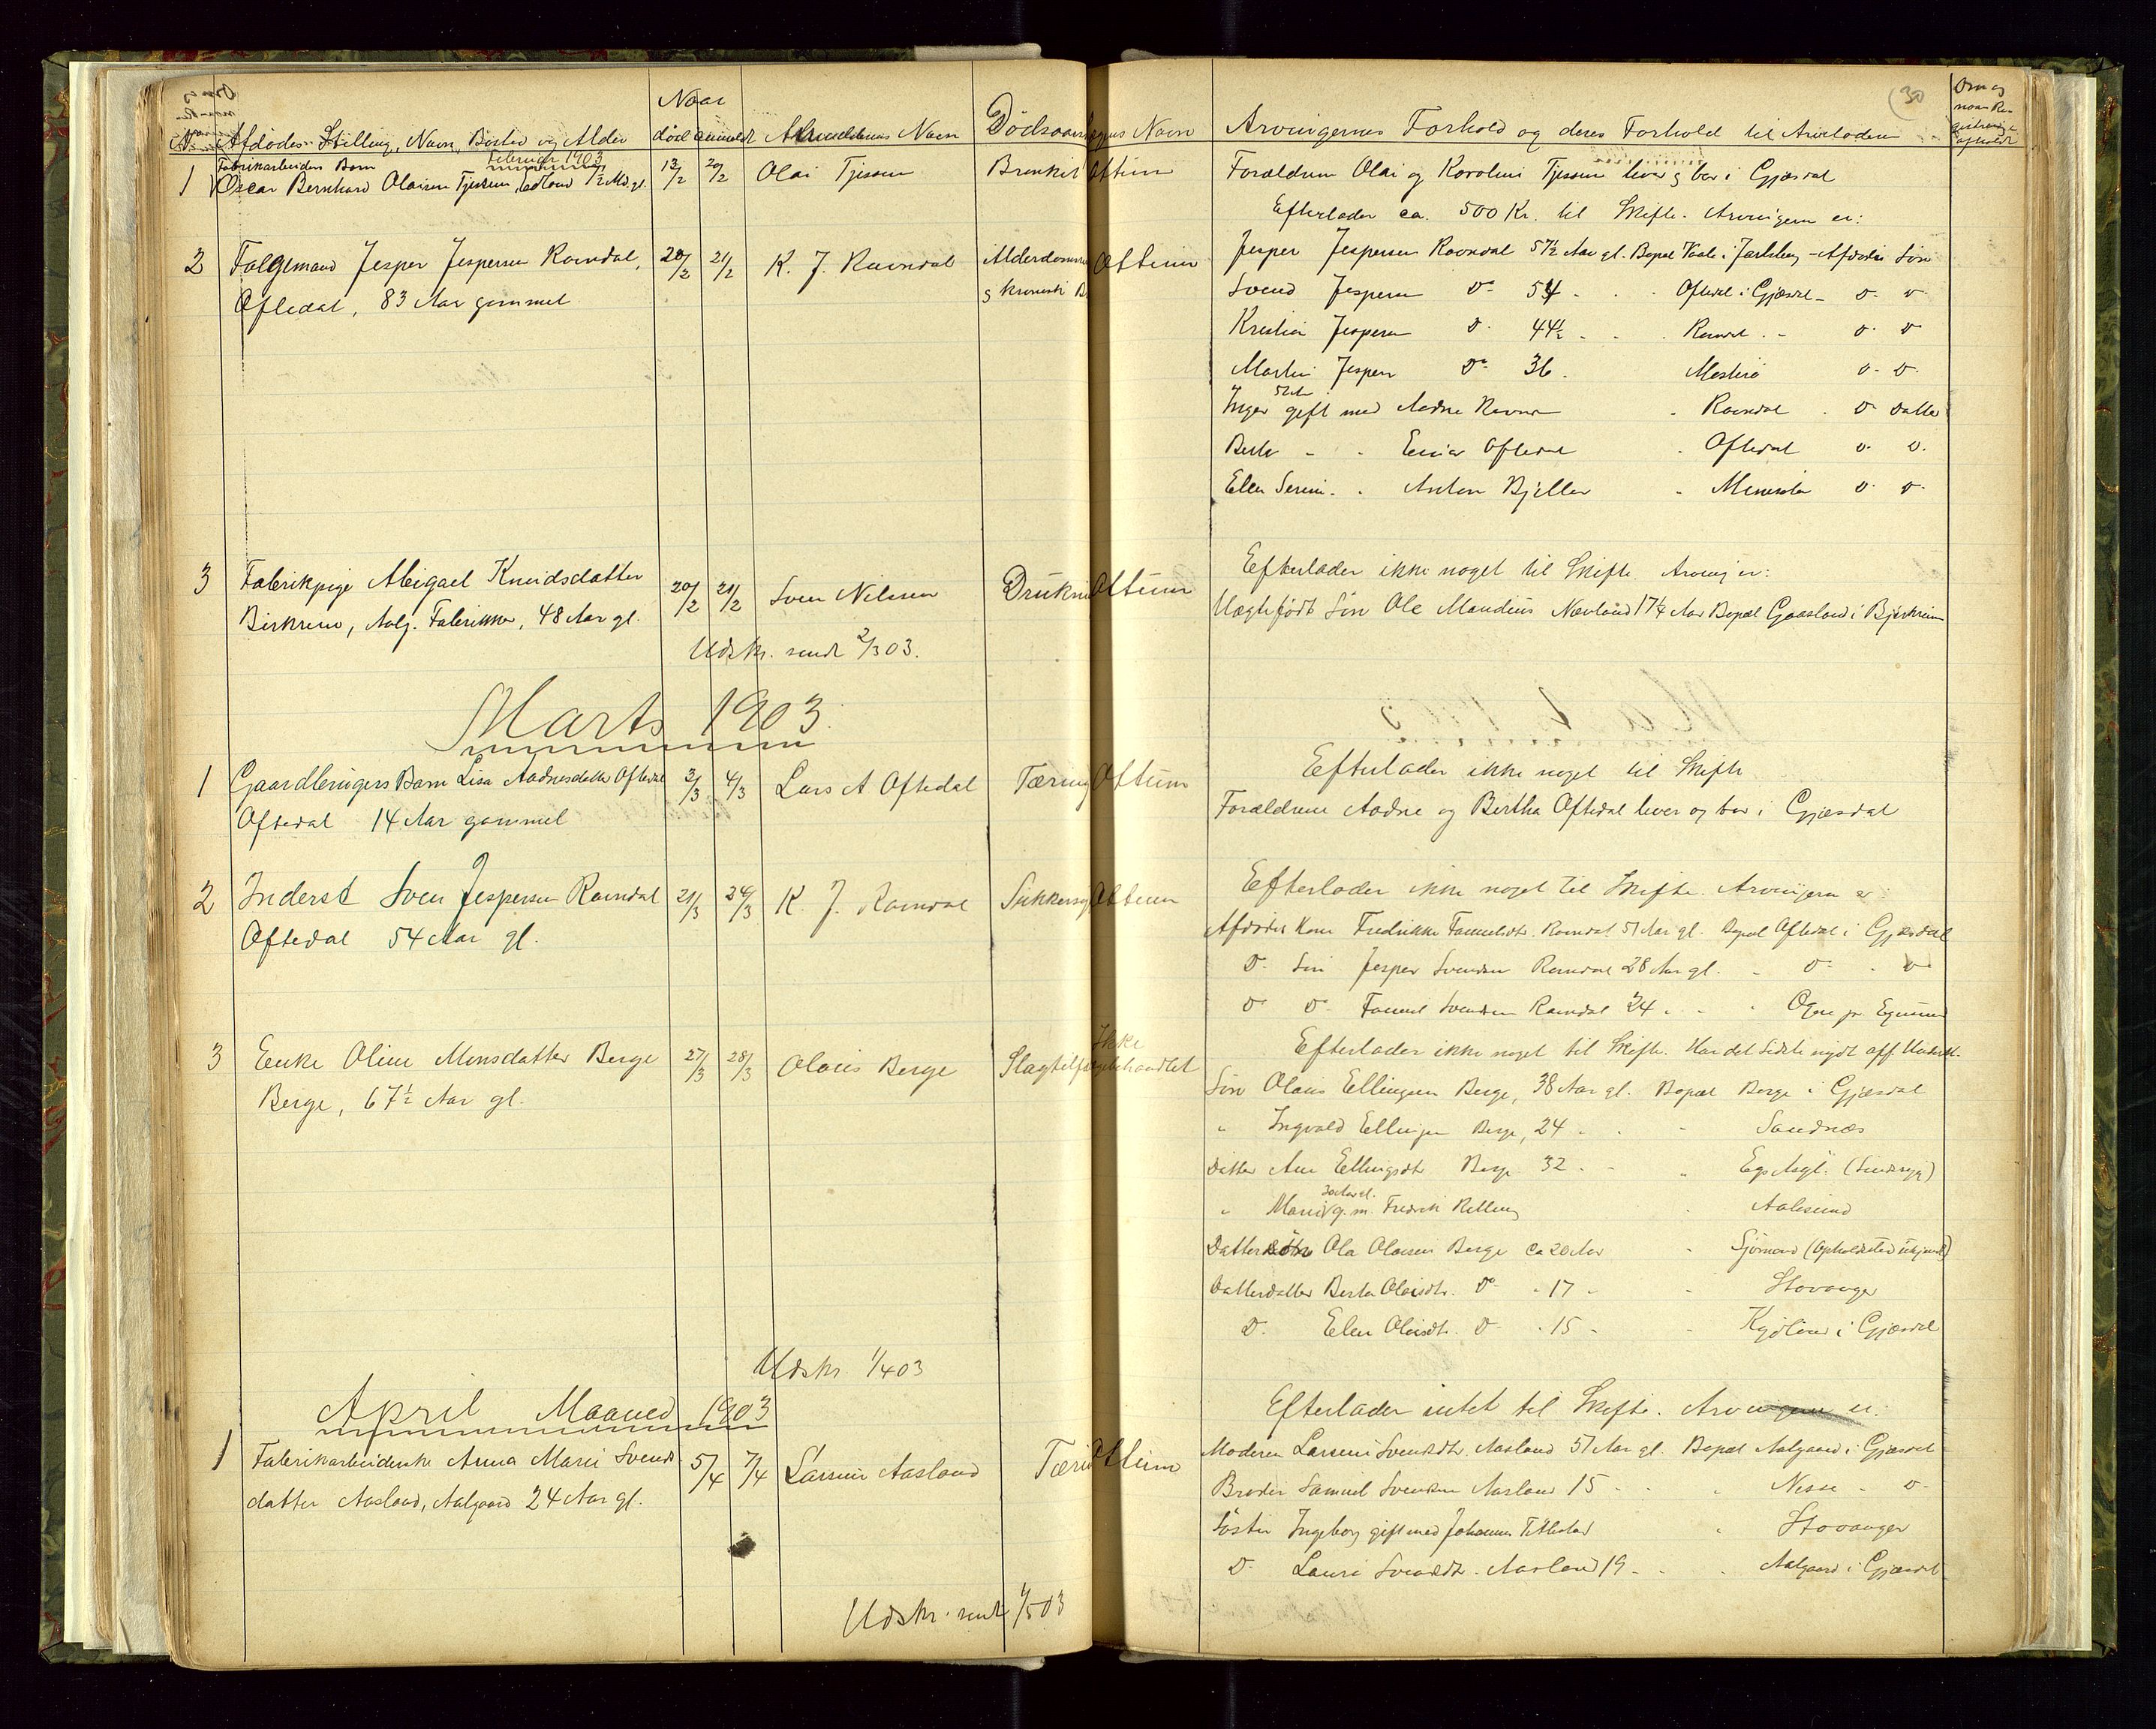 Naar
No Afdødes Stilling, Navn, Bosted og Alder død anmeldt Anmelderens Navn Dødsaarsag Lægens Navn
Februar 1903
1 Fabrikarbeider Barn
Oscar Bernhard Olaisen Tjessem, 13/2 20/2 Olai Tjessem Bronkit Attium
2 Følgemand Jesper Jespersen Ravndal, 20/2 21/2 K. J. Ravndal Alderdomssv. Attium
Oftedal, 83 Aar gammel & kronisk Br
3 Fabrikpige Abigael Knudsdatter
Birkrem, Aalg. Fabrikker, 48 Aar gl. 20/2 21/2 Sven Nilsen Druknet Attium
Udskr. sendt 2/3 03.
Marts 1903
1 Gaardbrugers Barn Lisa Aadnesdatter Oftedal 3/3 4/3 Lars A Oftedal Tæring Attium
Oftedal 14 Aar gammel
2 Inderst Sven Jespersen Ravndal 21/3 24/3 K. J. Ravndal Sukkersyg Attium
Oftedal 54 Aar gl.
3 Enke Oline Monsdatter Berge 27/3 28/3 Olaus Berge Slagtilf. Ikke lægebehandlet
Berge, 67½ Aar gl.
Udskr 1/4 03
April Maaned 1903
1 Fabrikarbeiderske Anna Marie Svends 5/4 7/4 Larsine Aasland Tæring Attium
datter Aasland, Aalgaard 24 Aar gl.
Udskr. sendt 1/5 03
(30
Arvingernes Forhold og deres Forhold til Arveladeren
Forældrene Olai og Karoline Tjessem lever & bor i Gjæsdal
Efterlader ca. 500 Kr. til Skifte. Arvingerne er:
Jesper Jespersen Ravndal 57½ Aar gl. Bopæl Vaale i Jarlsberg - Afdødes Søn
Svend Jespersen Do 54 - Oftedal i Gjæsdal - Do Do
Kristian Jespersen Do 44½ - Ravndal - Do Do
Martin Jespersen Do 36 - Mosterø Do Do
Inger gift med Aadne Ravndal - Ravndal - Do Datter
Berta - - Einar Oftedal - Oftedal Do Do
Ellen Serine - - Anton Bjelland - Minesota Do Do
Efterlader ikke noget til Skifte. Arving er:
Uægtefødt Søn Ole Mandius Nævland 17½ Aar Bopæl Gaasland i Bjerkrem
Efterlader ikke noget til Skifte
Forældrene Aadne og Bertha Oftedal lever og bor i Gjæsdal
Efterlader ikke noget til Skifte. Arvingerne er:
Afdødes Kone Fredrikke Ravndal 51 Aar gl. Bopæl Oftedal i Gjæsdal
Do Søn Jesper Svendsen Ravndal 28 Aar gl. - Do - Do
Do Do Svendsen Ravndal 24 - - Ogne pr. Egersund
Efterlader ikke noget til Skifte. Har det sidste nydt off. Underst.
Søn Olaus Ellingsen Berge, 38 Aar gl. Bopæl Berge i Gjæsdal
" Ingvald Ellingsen Berge, 24 - - Sandnæs
Datter Ane Ellingsdt. Berge 32 - - Egs Asyl. (Sindsyg)
" Marie g. m. Fredrik Relling - Aalesund
Dattersøn Ola Olausen Berge ca 20 Aar - Sjømand (Opholdsted ukjendt)
Datterdatter Berta Olausdt. Do - 17 - - Stavanger
Do. Elen Olausdt. Do - 15 - - Kydland i Gjæsdal
Efterlader intet til Skifte. Arvingerne er:
Moderen Larsine Svendsdtr. Aasland 57 Aar gl. Bopæl Aalgaard i Gjæsdal
Broder Samuel Svendsen Aasland 15 - - Nesse - Do
Søster Ingeborg gift med Johannes - Stavanger
Do Laura Svendsdtr. Aasland 19 - - Aalgaard i Gjæsdal